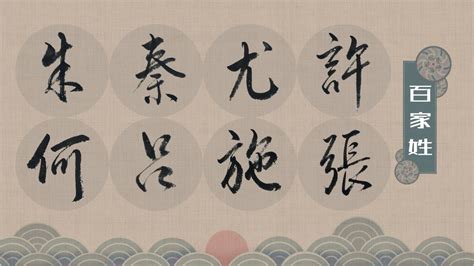 百家姓
朱秦尤許
何呂施張